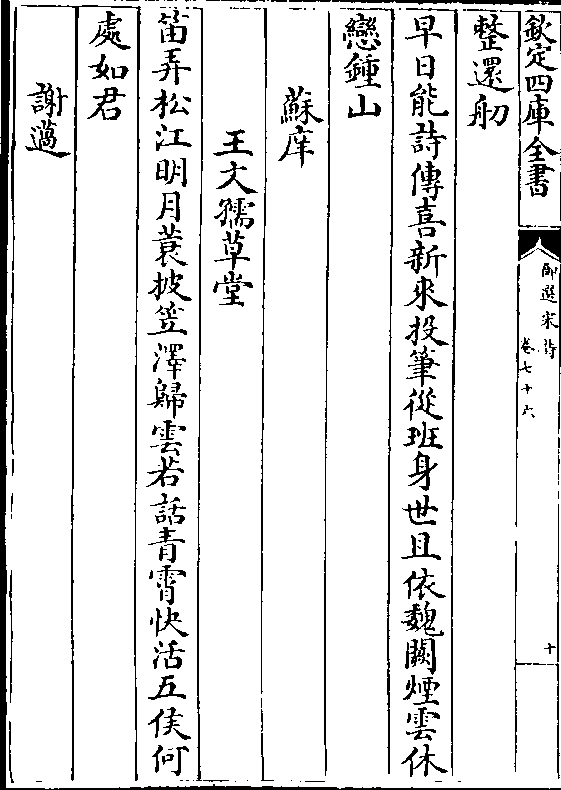 欽定四庫全書
御選宋詩
卷七十六
十
整還舠
早日能詩傳喜新來投筆從班身世且依魏闕煙雲休
戀鍾山
蘇庠
王文孺草堂
笛弄松江明月蓑披笠澤歸雲若話青霄快活五侯何
處如君
謝薖